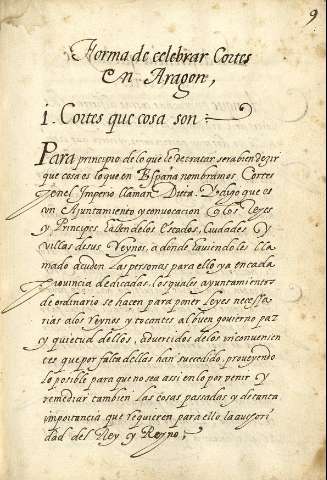 9
Forma de celebrar Cortes
en Aragon,
1. Cortes que cosa son
Para principio de lo que se ha de tratar sera bien dezir
que cosa es lo que en España nombramos Cortes
y en el Imperio llaman Dieta. Y digo que es
un Ayuntamiento y convocacion q los Reyes
y Principes hazen de los Estados, Ciudades y
villas de sus Reynos, a donde haviendoles lla
mado acuden las personas para ello ya en cada
provincia dedicadas. los quales ayuntamientos
de ordinario se hacen para poner leyes necessa
rias a los reynos y tocantes al buen govierno paz
y quietud dellos, advertidos de los inconvenien
tes que por falta dellas han succedido. proveyendo
lo posible para que no sea assi en lo por venir y
remediar tambien las cosas passadas y de tanta
importancia que requieren para ello la autori
dad del Rey y Reyno;